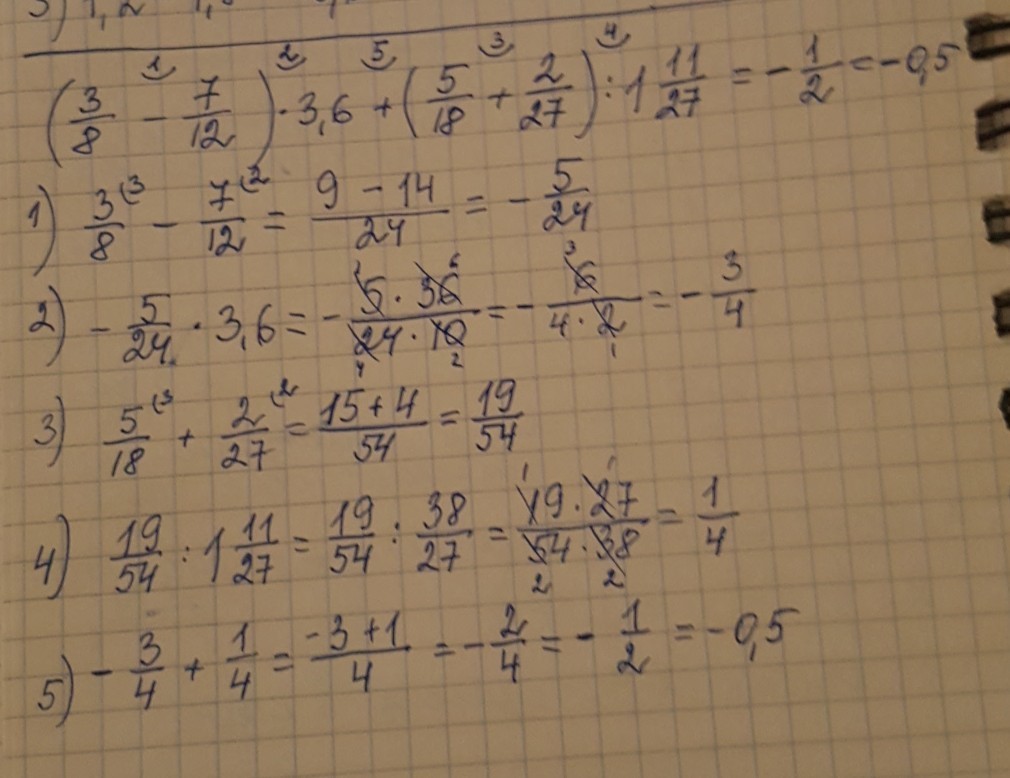 (3/8 - 7/12) · 3,6 + (5/18 + 2/27) : 1 11/27 = - 1/2 = - 0,5
1) 3/8 - 7/12 = (9 - 14)/24 = - 5/24
2) - 5/24 · 3,6 = - (5 · 36)/(24 · 10) = - 6/(4 · 2) = - 3/4
3) 5/18 + 2/27 = (15 + 4)/54 = 19/54
4) 19/54 : 1 11/27 = 19/54 : 38/27 = (19 · 27)/(54 · 38) = 1/4
5) - 3/4 + 1/4 = (-3 + 1)/4 = - 2/4 = - 1/2 = - 0,5